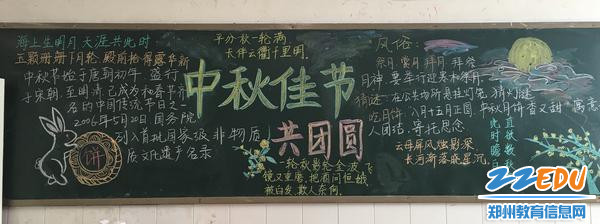 海上生明月 天涯共此时
五颗珊珊下月轮,殿前拾得露华新
中秋节始于唐朝初年,盛行
于宋朝,至明清,已成为和春节齐
名的中国传统节日之一
2006年5月20日,国务院
列入首批国家级非物质
质文化遗产名录
饼
平分秋一轮满
长伴云衢千里明
中秋佳节
共团圆
一轮秋影转金波,飞
镜又重磨,把酒问姮娥
被白发,欺人奈何
风俗:
祭月 赏月 拜月 拜祭
月神:要举行迎寒和祭月
猜谜:在公共场所悬挂灯笼,猜灯谜
吃月饼:八月十五月正圆,中秋月饼香又甜"寓意
人团结,寄托思念
云母屏风烛影深
长河渐落晓星沉
直到
此时瞻白
22EDU
郑州教育信息网